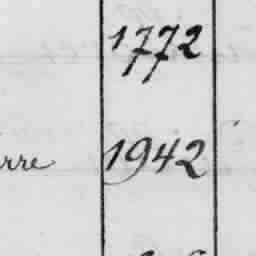 1772
rre 1942